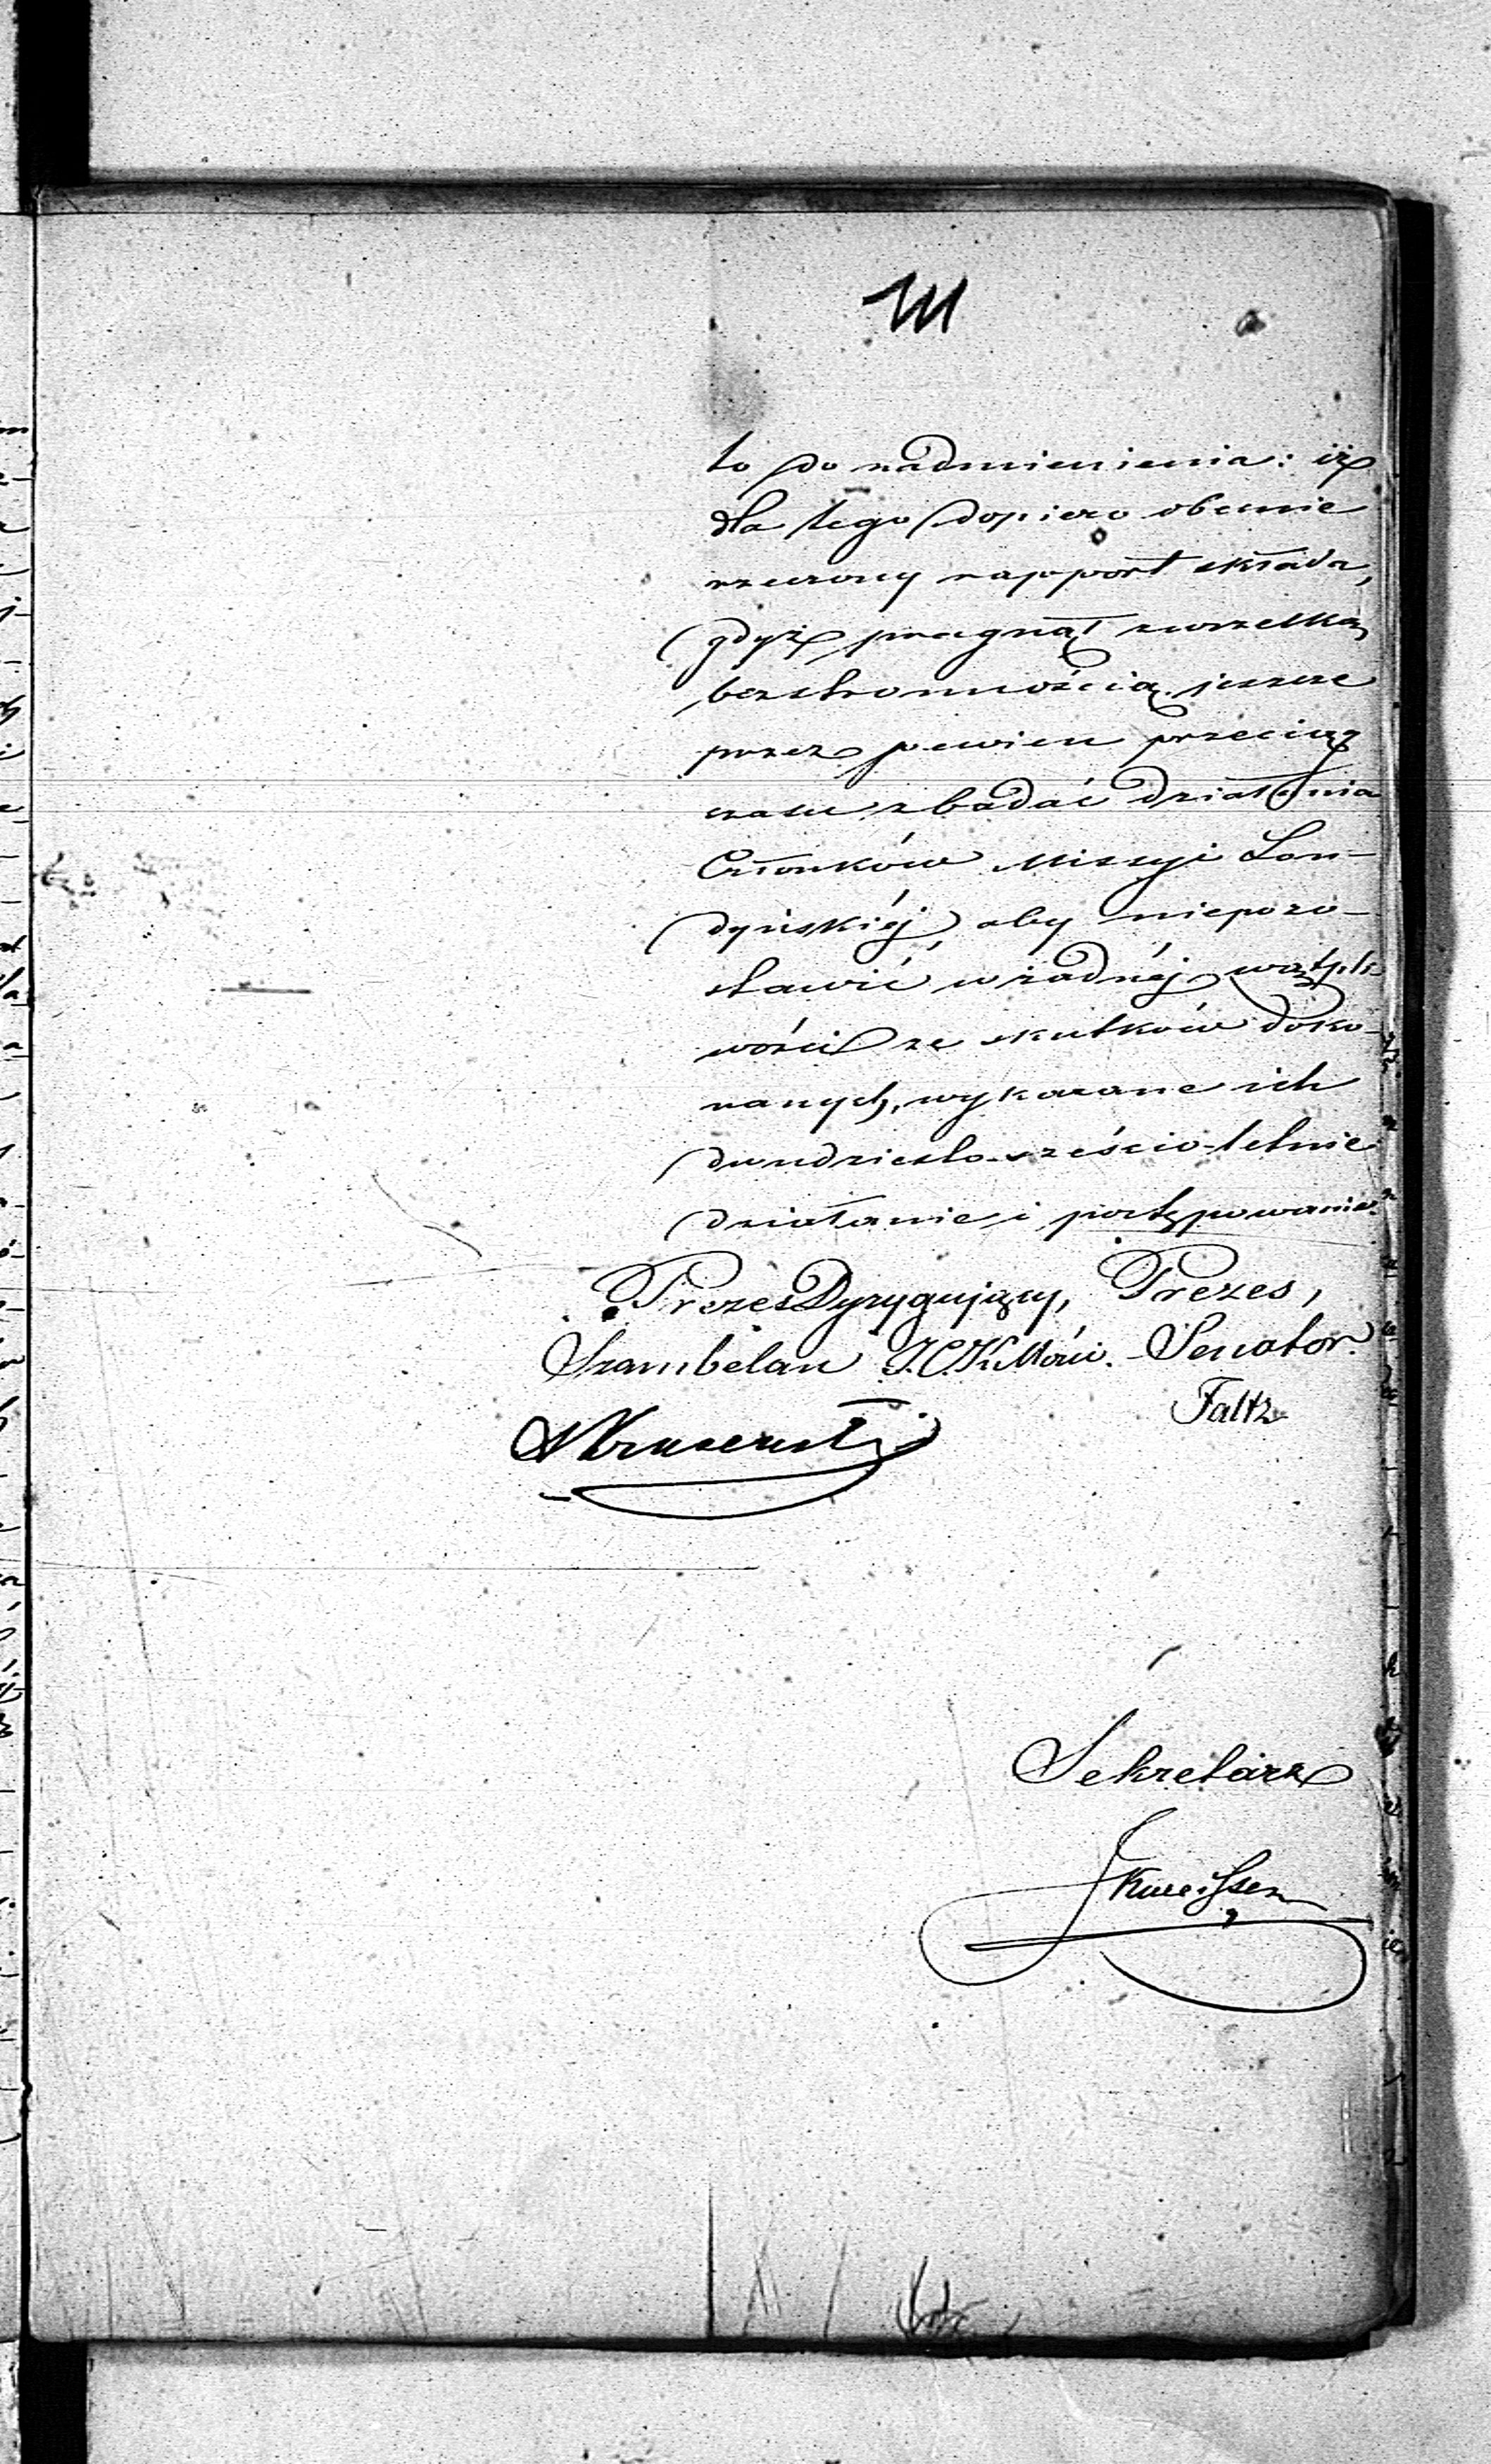 111
to do nadmienienia: iż
dla tego dopiero obecnie
rzeczony rapport składa,
gdyż pragnął z wszelką
bezstronnością jeszcze
przez pewien przeciąg
czasu zbadać działania
Członków Missyi Lon-
dyńskiéj, aby niepozo-
stawić w żadnéj wątpli-
wości ze skutków doko-
nanych, wykazane ich
dwudziesto-sześcio-letnie
działanie i postępowanie.
Prezes Dyrygujący, Prezes,
Szambelan J.C.K. Mości. Senator.
Faltz
Sekretarz